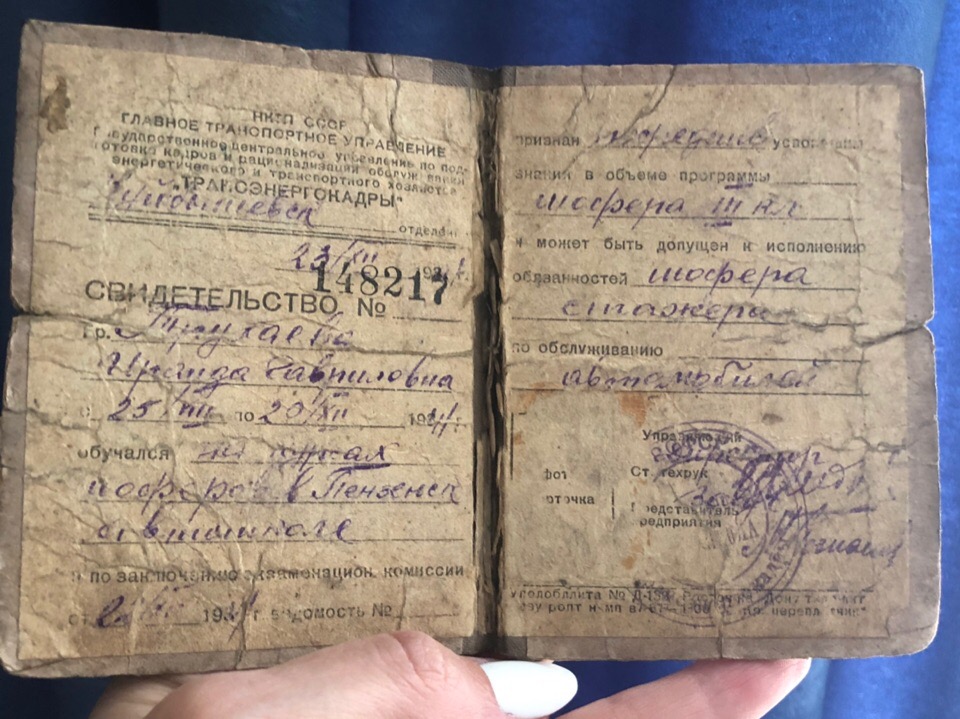 НКТП СССР
ГЛАВНОЕ ТРАНСПОРТНОЕ УПРАВЛЕНИЕ
Государственное центральное управление по под-
готовке кадров и рационализации обслуживания
энергетического и транспортного хозяйства
„ТРАНСЭНЕРГОКАДРЫ"
Куйбышевск
отделен
23/XII 194
СВИДЕТЕЛЬСТВО № 148217
Гр.
Гавриловна
с 25/VIII по 20/XII 1941
обучался на курсах
шоферов в Пензенск
автошколе
и по заключению экзаменацион. комиссии
от 193 г. ведомость №
признан усвоившим
знания в объеме программы
шофера III кл
и может быть допущен к исполнению
обязанностей шофера
стажера
по обслуживанию
автомобилей
Управляющий
Директор
фот
Ст. техрук
рточка
Представитель
предприятия
Уполобллита № Д-134